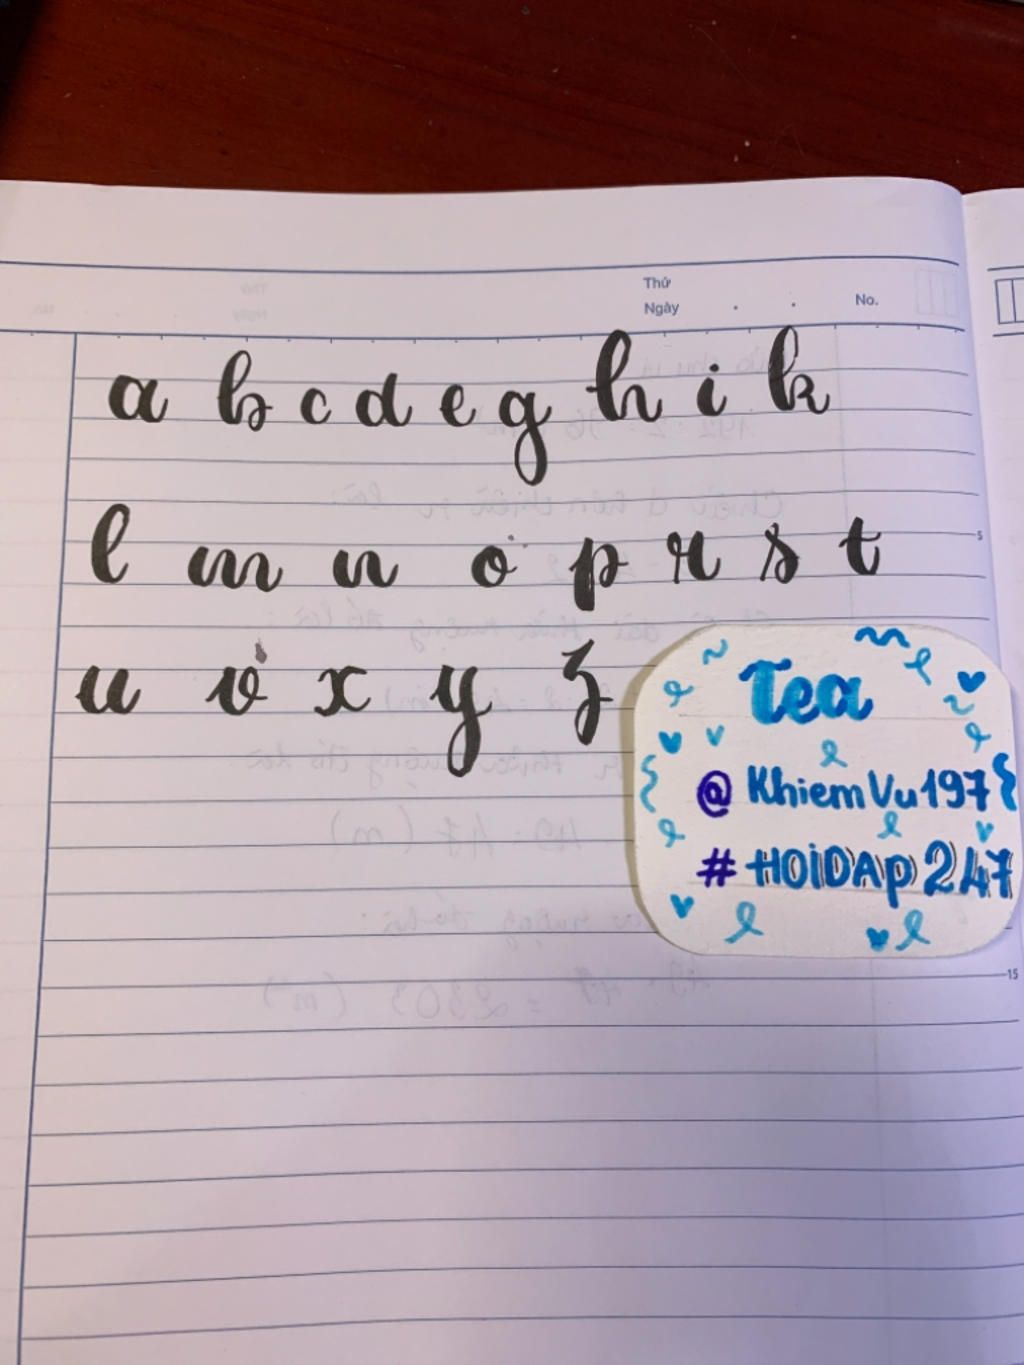 Thứ
Ngày . . No.
a b c d e g h i k
l m n o p r s t
5
u v x y z
Tea
@KhiemVu197
#HOiDAp247
15